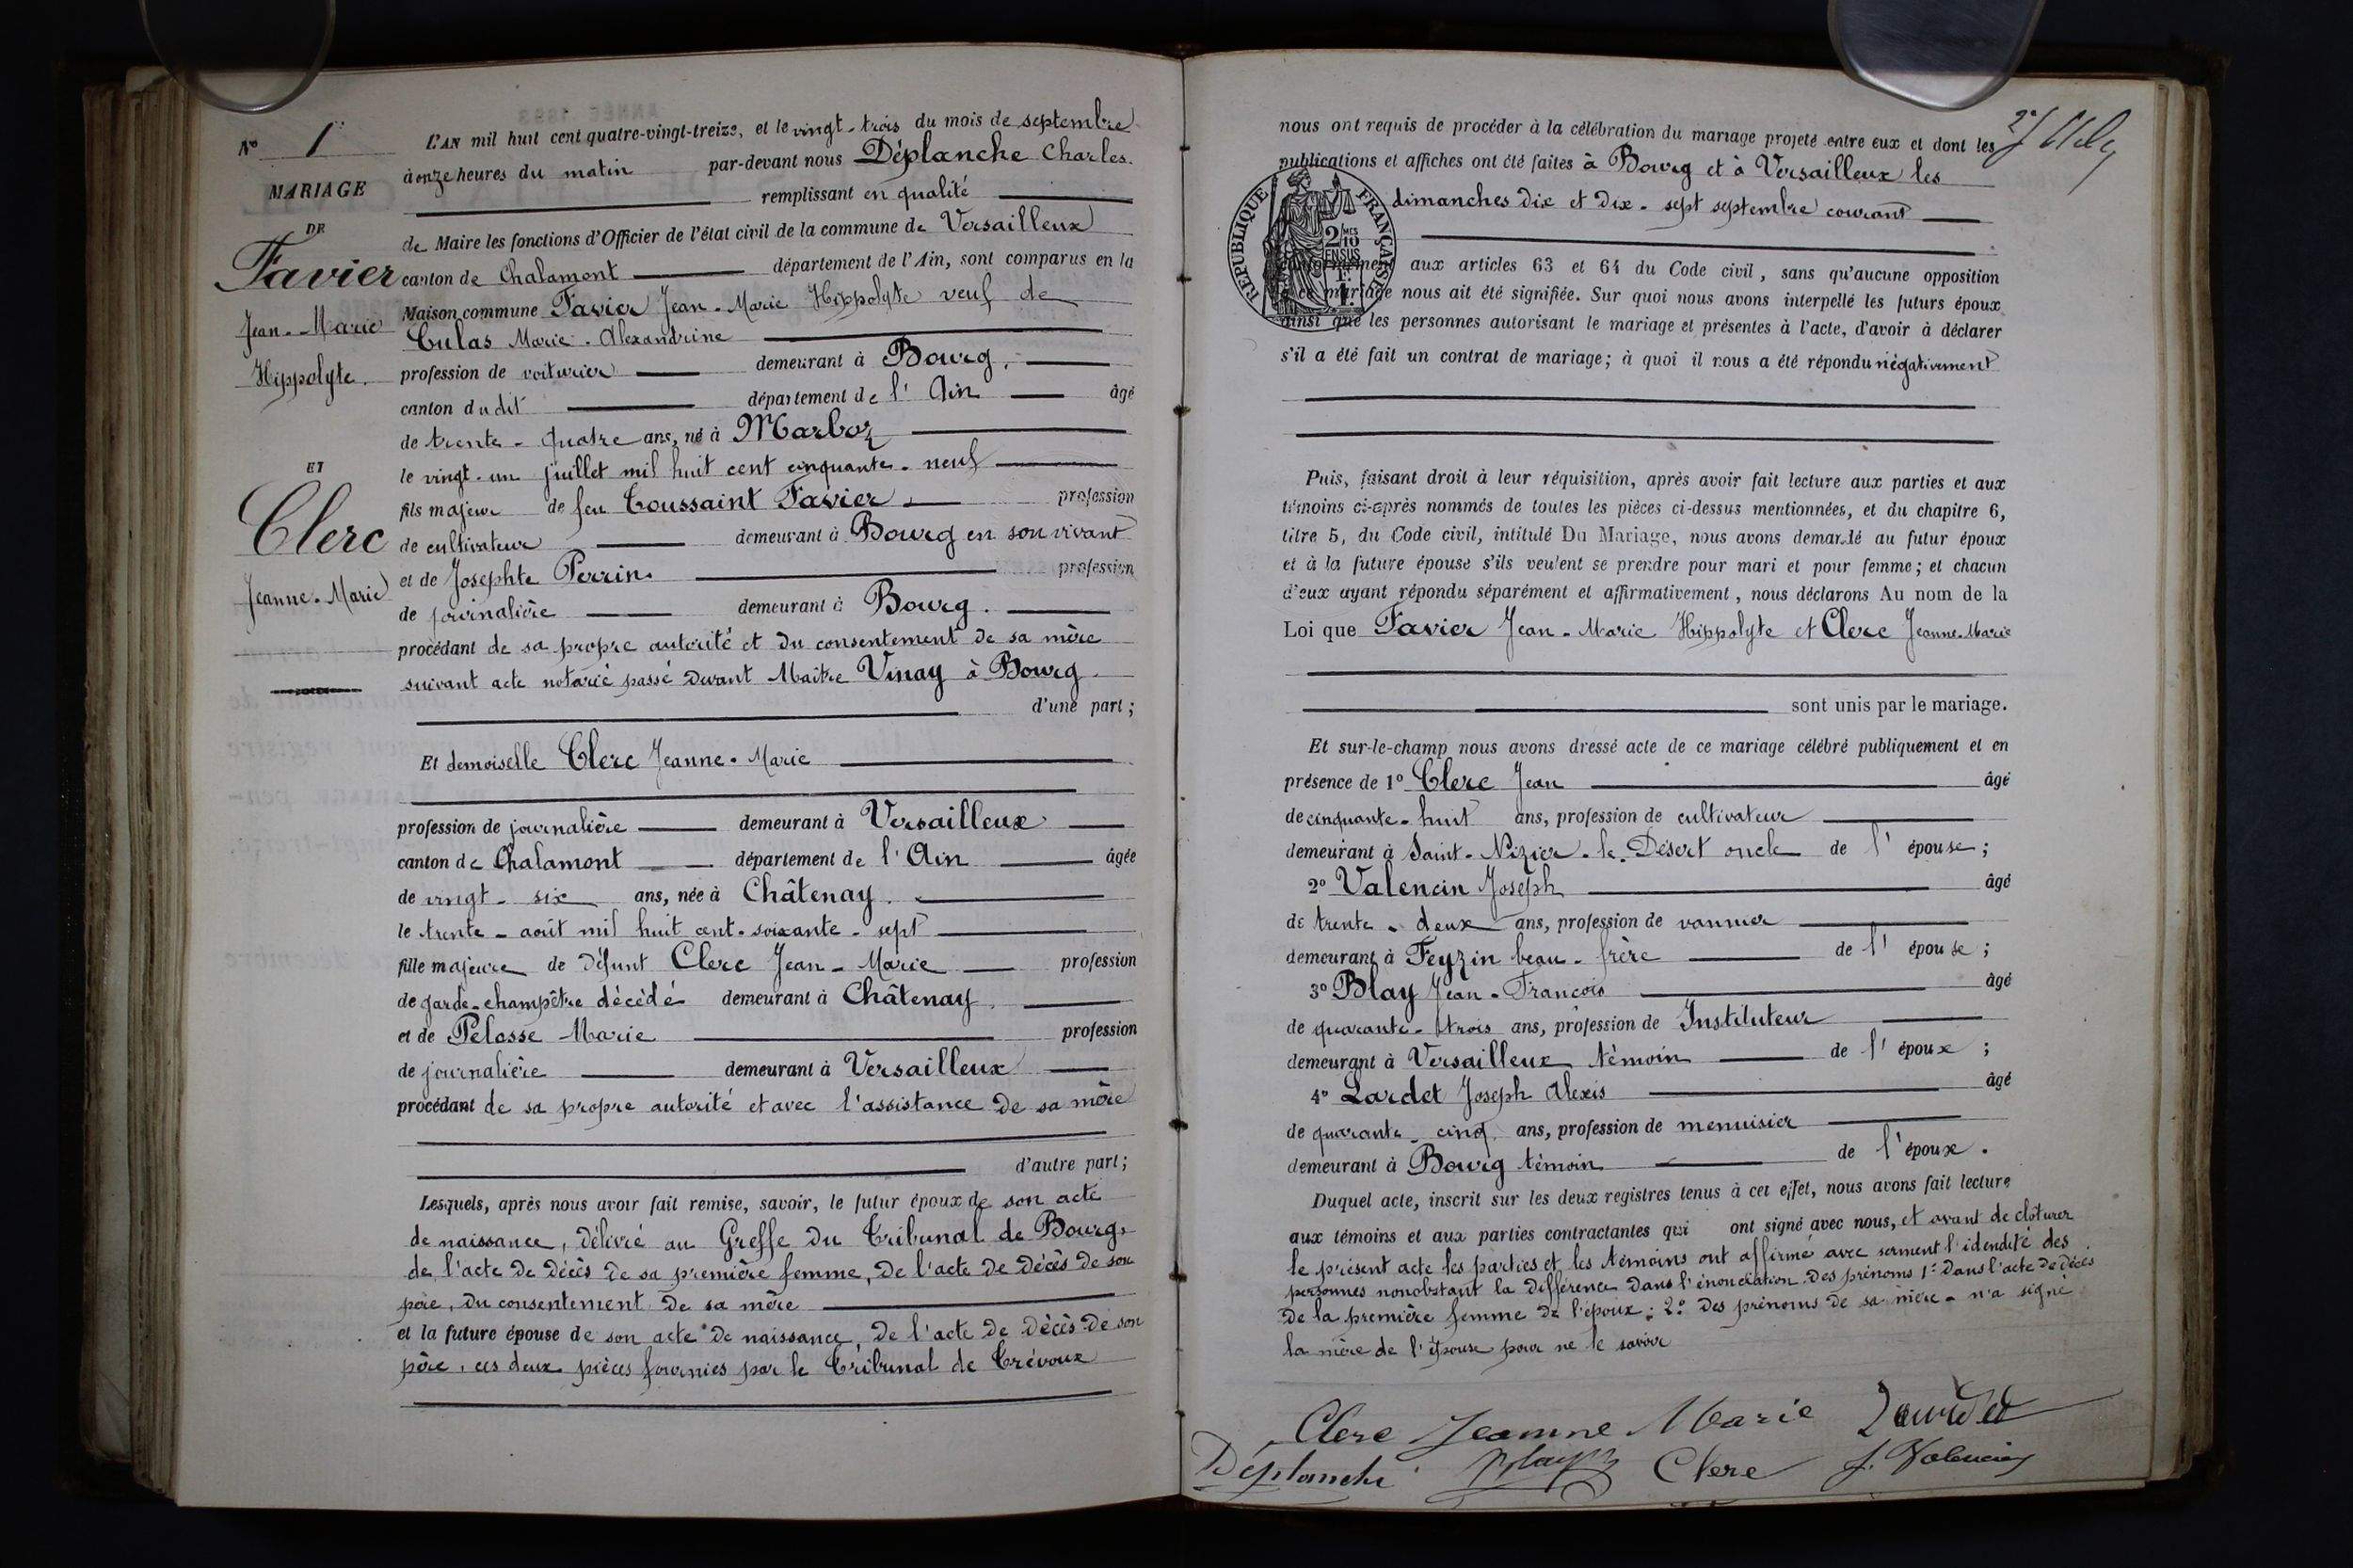 N° 1er
MARIAGE
DE
Favier
Jean-Marie
Hippolyte.
ET
Clerc
Jeanne-Marie
L'AN mil huit cent quatre-vingt-treize, et le vingt-trois du mois de septembre
à onze heures du matin par-devant nous Déplanche Charles.
remplissant en qualité
de Maire les fonctions d'Officier de l'état civil de la commune de Versailleux
canton de Chalamont département de l'Ain, sont comparus en la
Maison commune Favier Jean-Marie Hippolyte veuf de
Culas Marie-Alexandrine
profession de voiturier demeurant à Bourg,
canton dudit département de l'Ain âgé
de trente-quatre ans, né à Marboz
le vingt-un juillet mil huit cent cinquante-neuf
fils majeur de feu Toussaint Favier profession
de cultivateur demeurant à Bourg en son vivant
et de Josephte Perrin profession
de journalière demeurant à Bourg.
procédant de sa propre autorité et du consentement de sa mère
suivant acte notarié passé devant Maître Vinay à Bourg.
d'une part;
Et demoiselle Clerc Jeanne-Marie
profession de journalière demeurant à Versailleux
canton de Chalamont département de l'Ain âgée
de vingt-six ans, née à Châtenay.
le trente-août mil huit cent-soixante-sept
fille majeure de défunt Clerc Jean-Marie profession
de garde-champêtre décédé demeurant à Châtenay,
et de Pelosse Marie profession
de journalière demeurant à Versailleux
procédant de sa propre autorité et avec l'assistance de sa mère
d'autre part;
Lesquels, après nous avoir fait remise, savoir, le futur époux de son acte
de naissance, délivré au Greffe du Tribunal de Bourg,
de l'acte de décès de sa première femme, de l'acte de décès de son
père, du consentement de sa mère
et la future épouse de son acte de naissance, de l'acte de décès de son
père, ces deux pièces fournies par le Tribunal de Trévoux
nous ont requis de procéder à la célébration du mariage projeté entre eux et dont les
publications et affiches ont été faites à Bourg et à Versailleux les
dimanches dix et dix-sept septembre courant
REPUBLIQUE FRANÇAISE
2/10
EN SUS
conformément aux articles 63 et 64 du Code civil, sans qu'aucune opposition
à ce mariage nous ait été signifiée. Sur quoi nous avons interpellé les futurs époux
ainsi que les personnes autorisant le mariage et présentes à l'acte, d'avoir à déclarer
s'il a été fait un contrat de mariage; à quoi il nous a été répondu négativement
Puis, faisant droit à leur réquisition, après avoir fait lecture aux parties et aux
témoins ci-après nommés de toutes les pièces ci-dessus mentionnées, et du chapitre 6,
titre 5, du Code civil, intitulé Du Mariage, nous avons demandé au futur époux
et à la future épouse s'ils veulent se prendre pour mari et pour femme; et chacun
d'eux ayant répondu séparément et affirmativement, nous déclarons Au nom de la
Loi que Favier Jean-Marie Hippolyte et Clerc Jeanne-Marie
sont unis par le mariage.
Et sur-le-champ nous avons dressé acte de ce mariage célébré publiquement et en
présence de 1° Clerc Jean âgé
de cinquante-huit ans, profession de cultivateur
demeurant à Saint-Nizier-le-Désert oncle de l'épouse;
2° Valencin Joseph âgé
de trente-deux ans, profession de vannier
demeurant à Feyzin beau-frère de l'épouse;
3° Blay Jean-François âgé
de quarante-trois ans, profession de Instituteur
demeurant à Versailleux témoin de l'époux;
4° Lardet Joseph Alexis âgé
de quarante-cinq ans, profession de menuisier
demeurant à Bourg témoin de l'époux.
Duquel acte, inscrit sur les deux registres tenus à cet effet, nous avons fait lecture
aux témoins et aux parties contractantes qui ont signé avec nous, et avant de clôturer
le présent acte les parties et les témoins ont affirmé avec serment l'idendité des
personnes nonobstant la différence dans l'énonciation des prénoms 1° dans l'acte de décès
de la première femme de l'époux; 2° des prénoms de sa mère - n'a signé
la mère de l'épouse pour ne le savoir
Clerc Jeanne Marie Lardet
Déplanche Blay Clerc J. Valencin